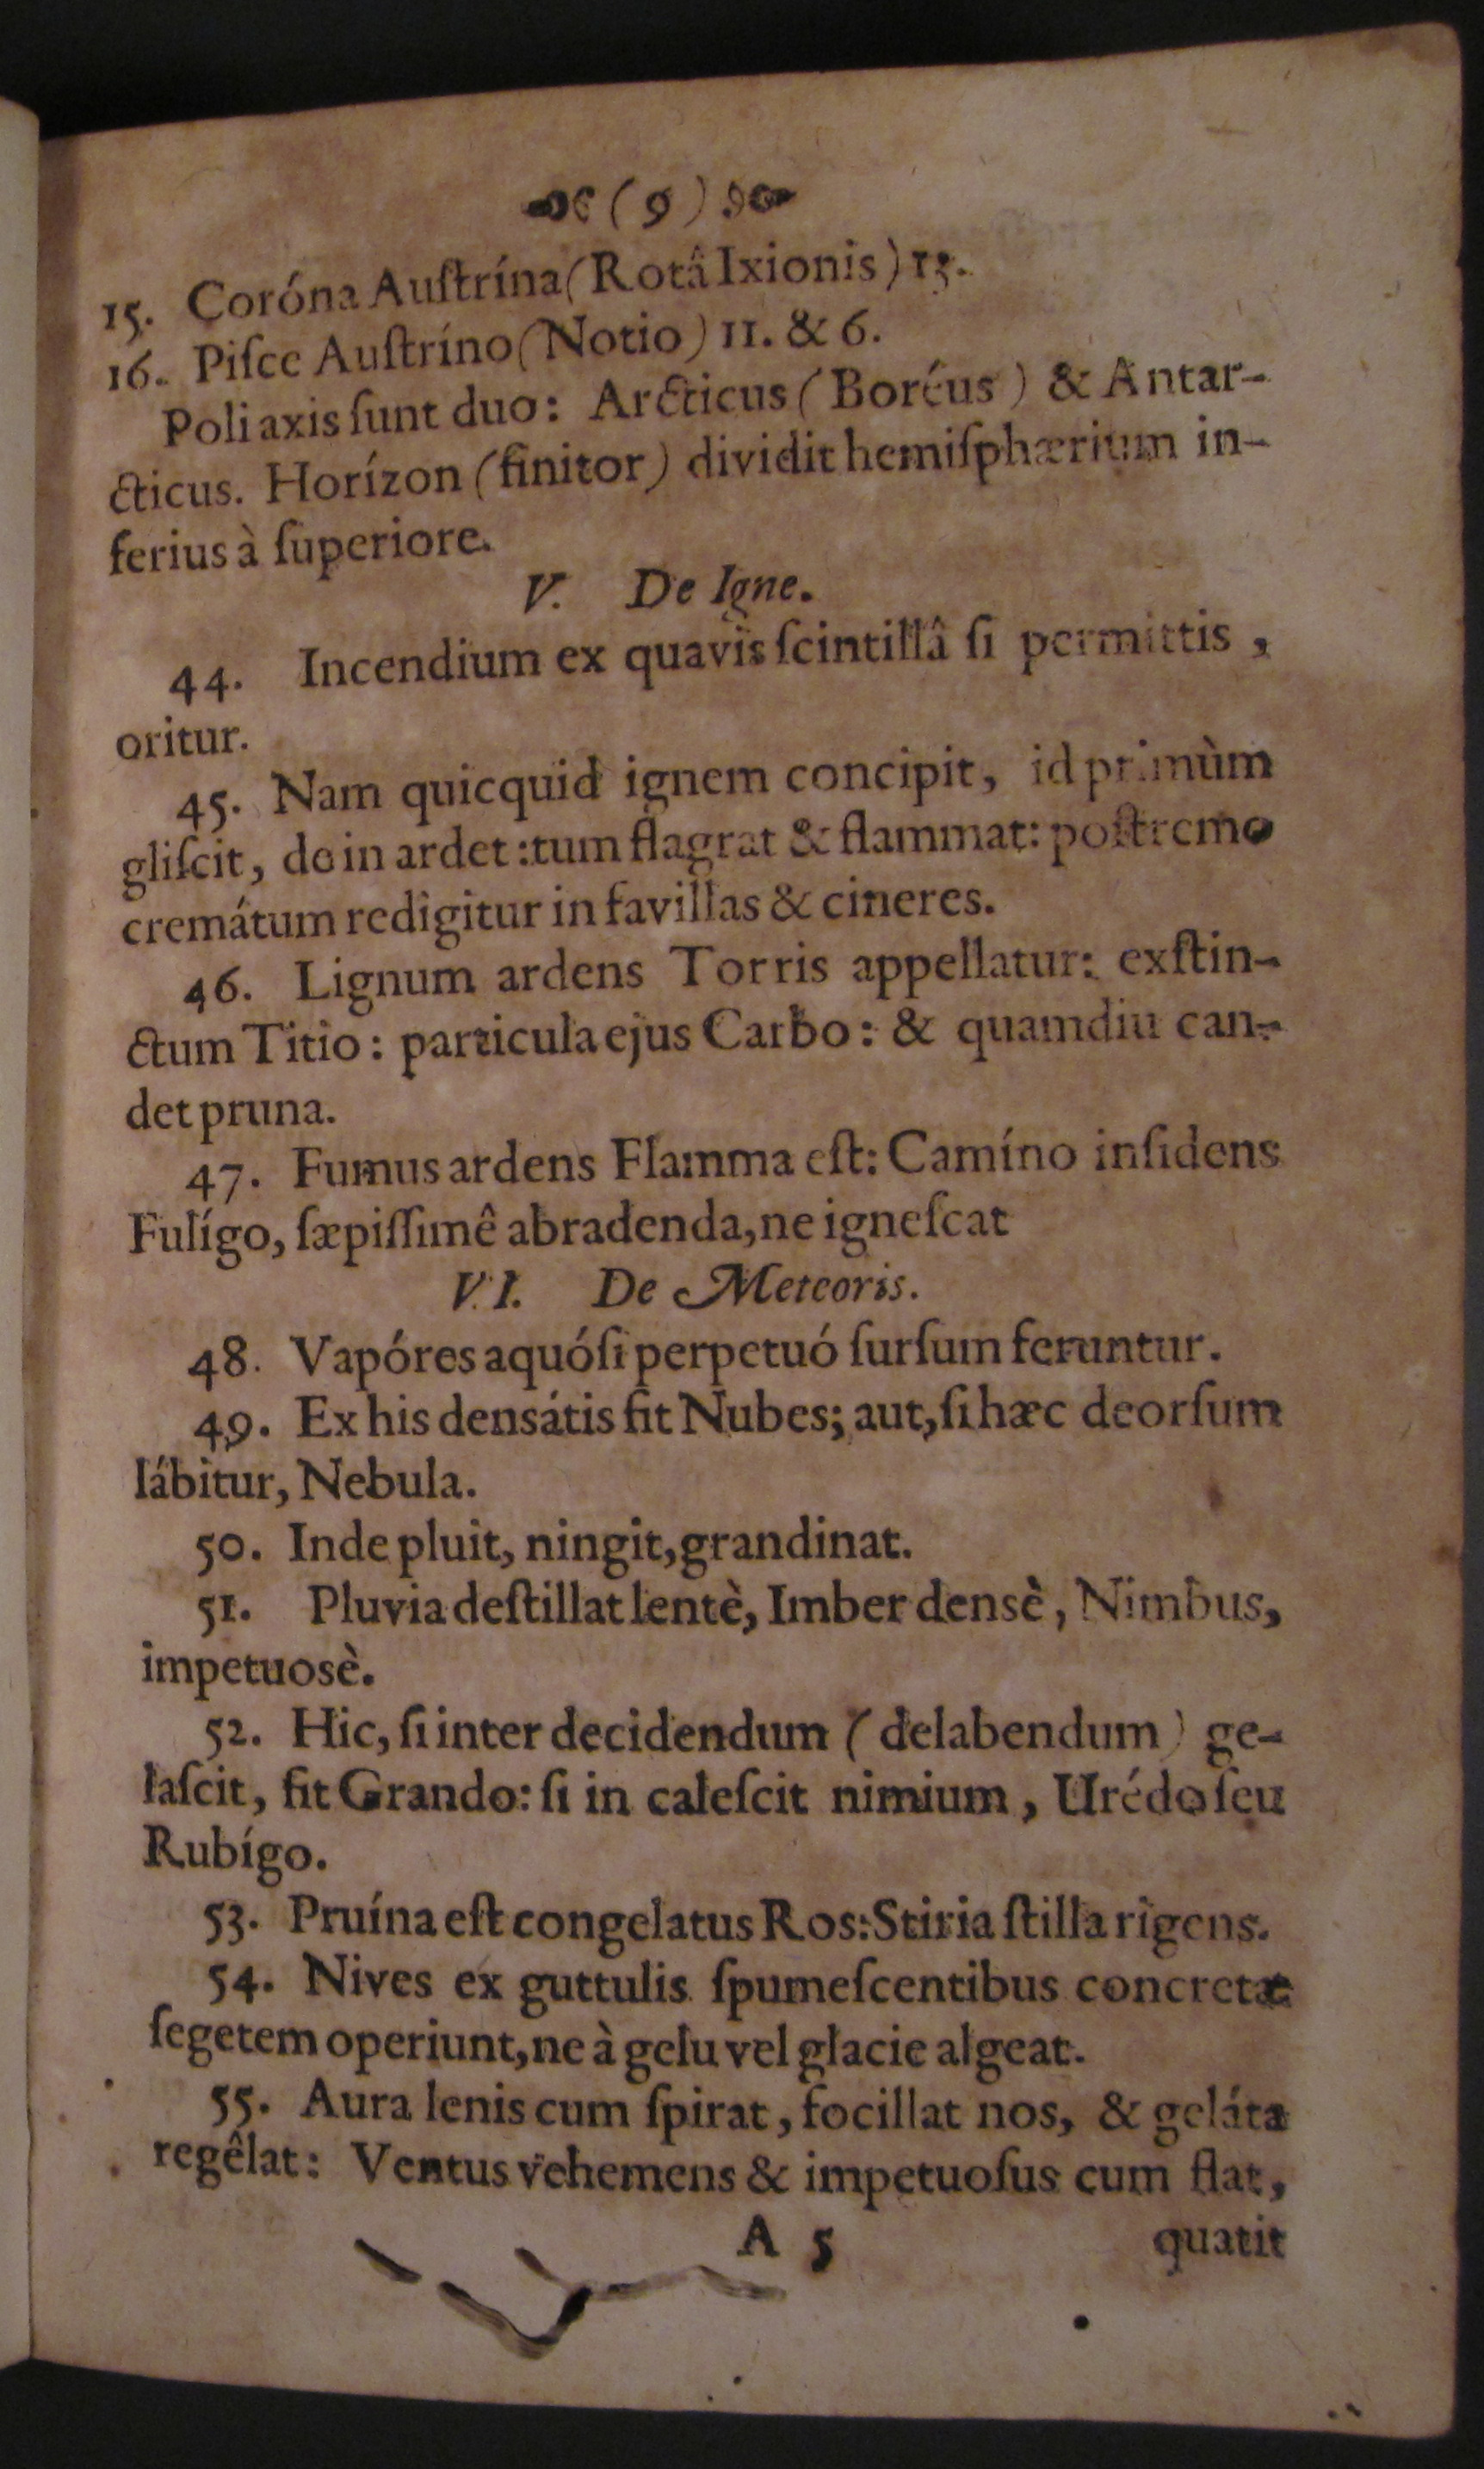 (9)
15. Coróna Auſtrína (Rotâ Ixionis) 13.
16. Piſce Auſtríno (Notio) 11. & 6.
Poli axis ſunt duo: Arcticus (Boréus) & Antar-
cticus. Horízon (finitor) dividit hemiſphærium in-
ferius à ſuperiore.
V. De Igne.
44. Incendium ex quavis ſcintillâ ſi permittis,
oritur.
45. Nam quicquid ignem concipit, id primùm
gliſcit, dein ardet: tum flagrat & flammat: poſtremo
cremátum redigitur in favillas & cineres.
46. Lignum ardens Torris appellatur: exſtin-
ctum Titio: particula ejus Carbo: & quamdiu can-
det pruna.
47. Fumus ardens Flamma eſt: Camíno inſidens
Fulígo, ſæpiſſimê abradenda, ne igneſcat
VI. De Meteoris.
48. Vapóres aquóſi perpetuó ſurſum feruntur.
49. Ex his densátis fit Nubes; aut, ſi hæc deorſum
lábitur, Nebula.
50. Inde pluit, ningit, grandinat.
51. Pluvia deſtillat lentè, Imber densè, Nimbus,
impetuosè.
52. Hic, ſi inter decidendum (delabendum) ge-
laſcit, fit Grando: ſi in caleſcit nimium, Urédo ſeu
Rubígo.
53. Pruína eſt congelatus Ros: Stiria ſtilla rigens.
54. Nives ex guttulis ſpumeſcentibus concretæ
ſegetem operiunt, ne à gelu vel glacie algeat.
55. Aura lenis cum ſpirat, focillat nos, & geláta
regêlat: Ventus vehemens & impetuoſus cum flat,
A 5 quatit